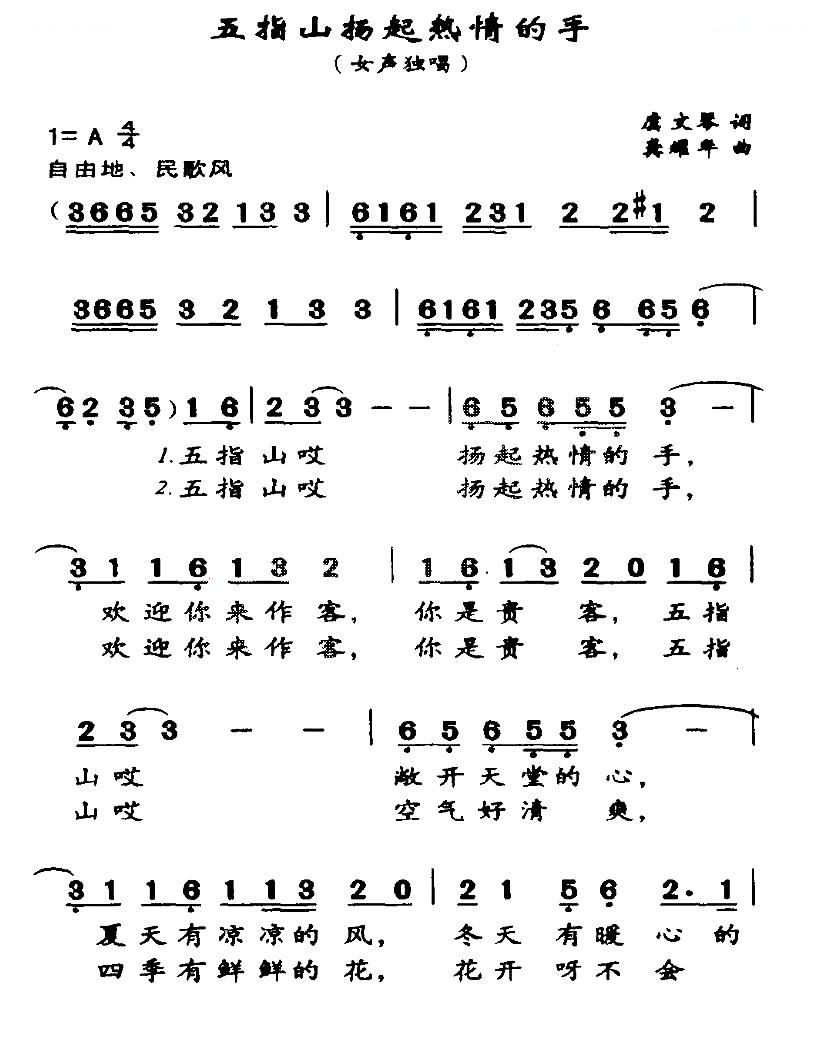 五指山扬起热情的手
（女声独唱）
1= A 4/4
虞文琴 词
自由地、民歌风
龚耀年 曲
(3665 32 133 3 | 6161 231 2 2#1 2 |
3665 3 2 1 3 3 | 6161 235 6 65 6 |
6 2 3 5 ) 1 6 | 2 3 3 – – | 6 5 6 5 5 3 – |
1.五指山哎 扬起热情的手，
2.五指山哎 扬起热情的手，
3 1 1 6 1 3 2 | 1 6 · 1 3 2 0 1 6 |
欢迎你来作客， 你是贵客， 五指
欢迎你来作客， 你是贵客， 五指
2 3 3 – – | 6 5 6 5 5 3 – |
山哎 敞开天堂的心，
山哎 空气好清爽，
3 1 1 6 1 1 3 2 0 | 2 1 5 6 2 · 1 |
夏天有凉凉的风， 冬天有暖心的
四季有鲜鲜的花， 花开呀不会